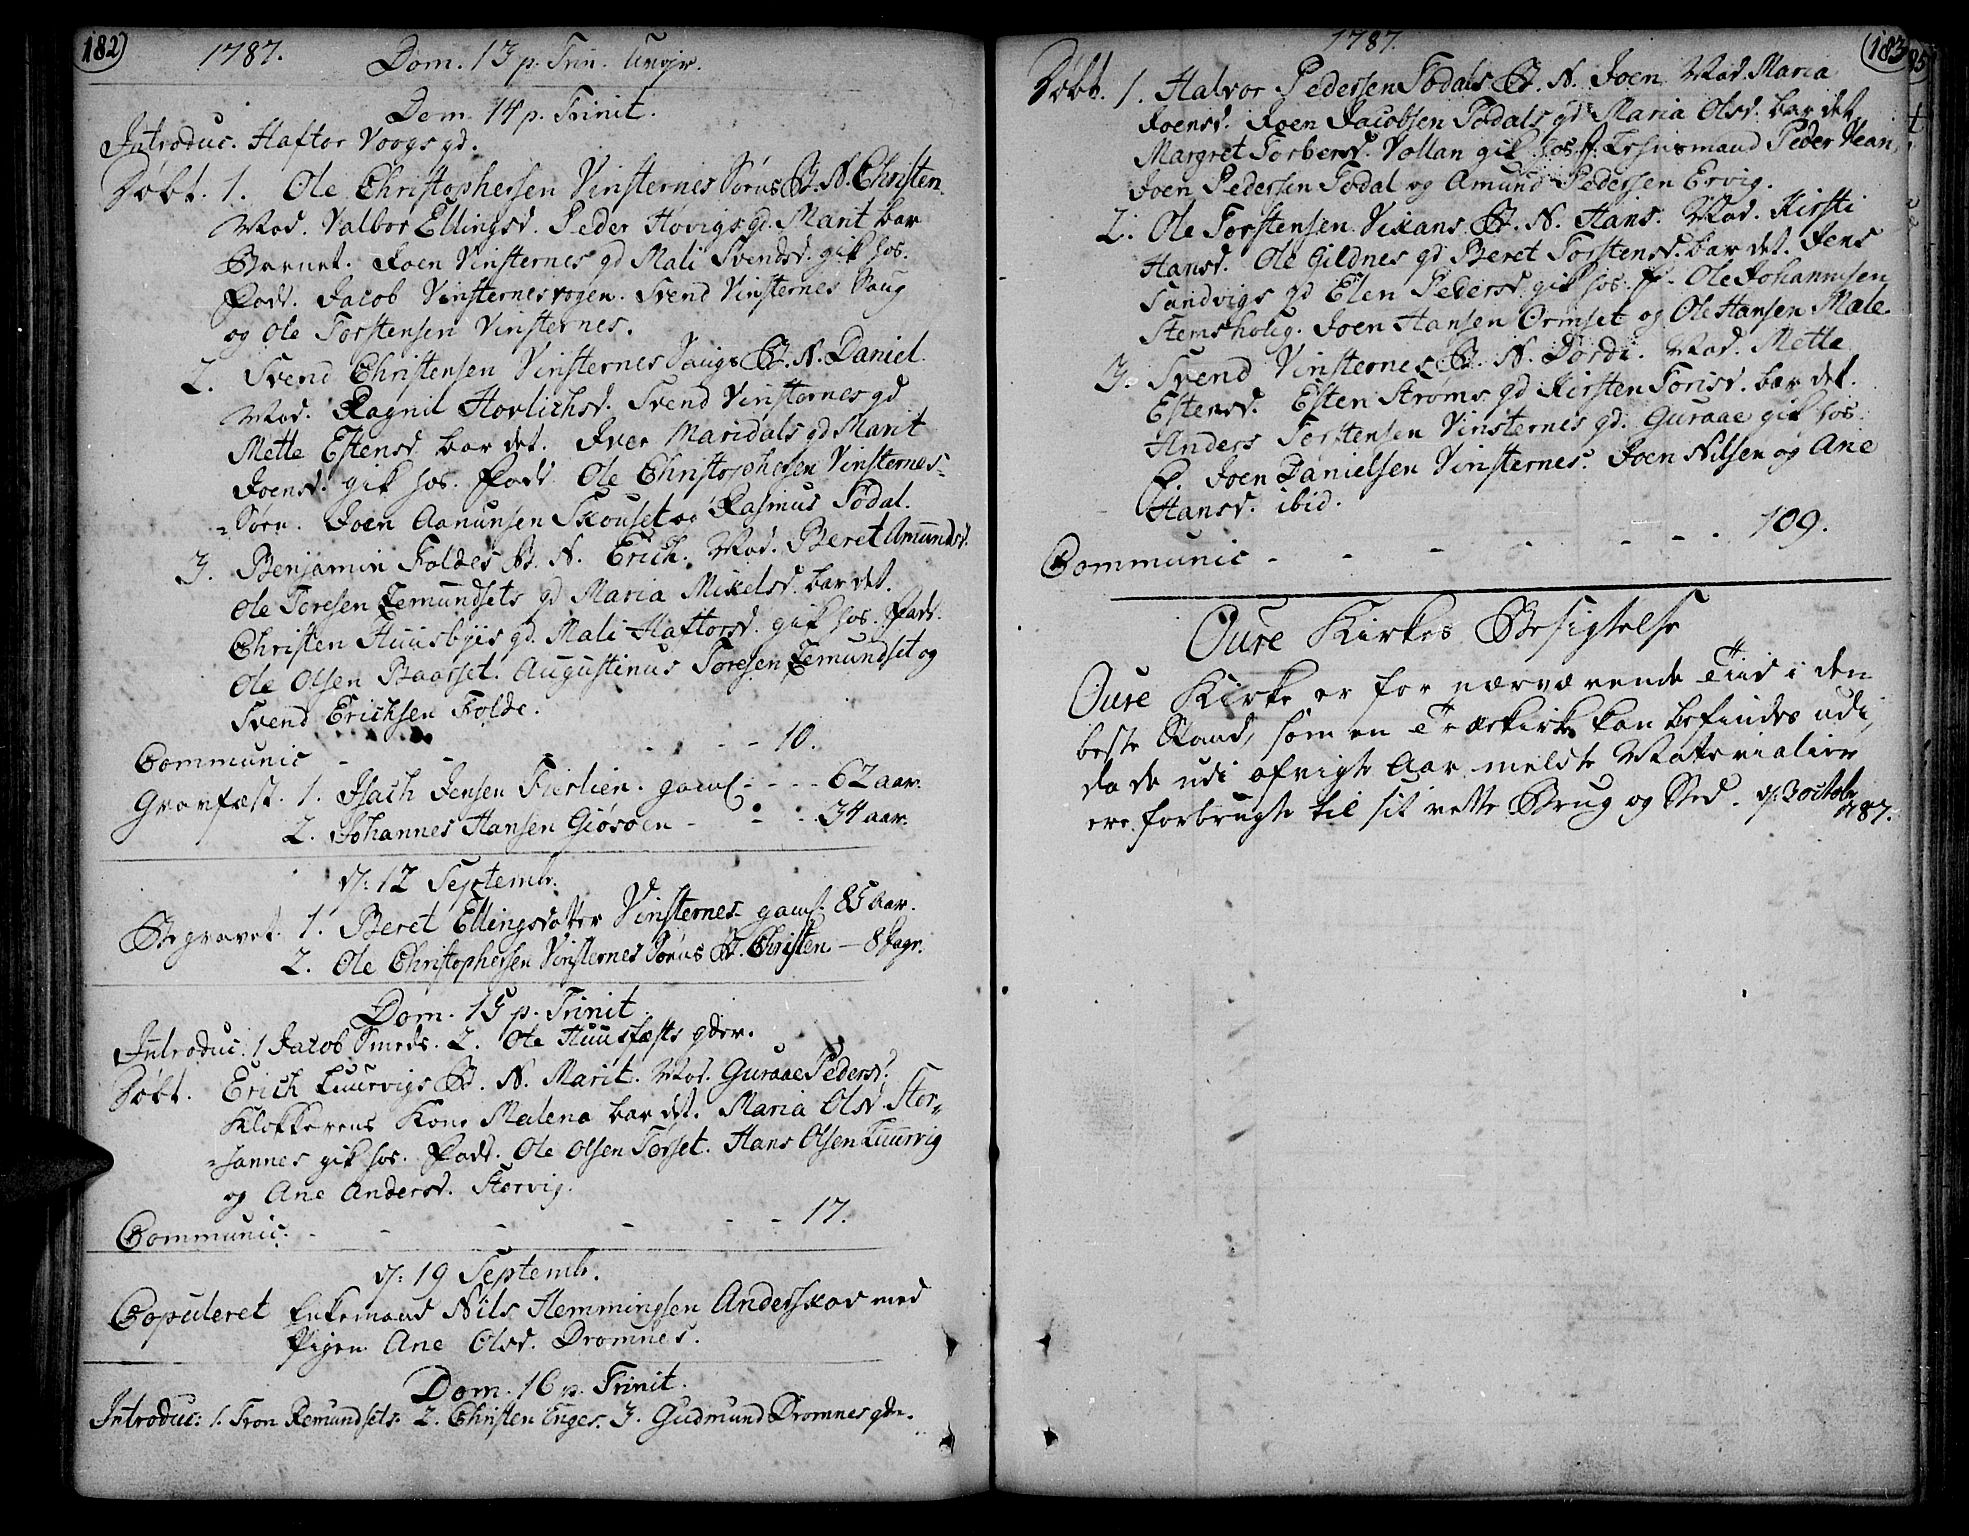 182
1787. Dom. 13 p. Trin.
Dom. 14 p. Trinit.
Introduc. Haftor Voogs gd.
Døbt. 1. Ole Christophersen Vinsternes Sørus B. N. Christen.
Mod. Valbor Ellingsd. Peder Hovigs gd. Marit bar
Barnet. Joen Vinsternes gd Mali Svendsd. gik hos.
Fadd. Jacob Vinsternesvogen. Svend Vinsternes Saug
og Ole Torstensen Vinsternes.
2. Svend Christensen Vinsternes Saugs B. N. Daniel
Mod. Ragnil Hovlichsd. Svend Vinsternes gd
Mette Estensd bar det. Iver Maridals gd Marit
Joensd. gik hos. Fadd. Ole Christophersen Vinsternes-
-Søen. Joen Aanunsen Skouset og Rasmus Todal.
3. Benjamin Foldes B. N. Erich. Mod. Beret Amundsd.
Ole Toresen Zemundsets gd Maria Mikelsd. bar det.
Christen Huusbyis gd. Mali Haftorsd. gik hos. Fadd.
Ole Olsen Baarset. Augustinus Toresen Zemundset og
Svend Erichsen Folde.
Communic - - - - 10.
Gravfæst. 1. Isach Jensen Fierlien. gaml. - - - 62 aar.
2. Johannes Hansen Giøsøen - - - 34 aar.
d. 12 Septembr.
Begravet. 1. Beret Ellingsdatter Vinsternes gaml. 85 Aar.
2. Ole Christophersen Vinsternes Sørus B. Christen - 8 Dage.
Dom. 15 p. Trinit.
Introduc. 1 Jacob Smeds. 2. Ole Huusfæsts gder.
Døbt. Erich Luurvigs B. N. Marit. Mod. Guraae Pedersd.
Klokkerens Kone Malena bar det. Maria Olsd. Stor-
-sannes gik hos. Fadd. Ole Olsen Torset. Hans Olsen Luurvig
og Ane Andersd. Storvig.
Communic. - - - - - 17.
d. 19 Septembr.
Copuleret Enkemand Nils Hemmingsen Anderskov med
Pigen Ane Olsd. Dromnes.
Dom. 16 p. Trinit.
Introduc: 1. Tron Remundsets. 2. Christen Enges. 3. Gudmund Dromnes gder.
1787.
183
Døbt. 1. Halvor Pedersen Todals B. N. Joen. Mod. Maria
Joensd. Joen Jacobsen Todals gd Maria Olsd. bar det
Margret Torbersd. Vollan gik hos. f. Lehnsmand Peder Vean,
Joen Pedersen Todal og Amund Pedersen Ervig.
2. Ole Torstensen Vikans B. N. Hans. Mod. Kirsti
Hansd. Ole Gildnes gd Beret Torstensd. bar det. Jens
Sandvigs gd Elen Pedersd. gik hos. f. Ole Johannesen
Stemshoug. Joen Hansen Ormset og Ole Hansen Male.
3. Svend Vinsternes B. N. Dordi. Mod. Mette
Estensd. Esten Strøms gd Kirsten Torisd. bar det.
Anders Torstensen Vinsternes gd. Guraae gik hos.
f. Joen Danielsen Vinsternes. Joen Nilsen og Ane
Hansd. ibid.
Communic - - - - - 109.
Oure Kirkes Besigtelse
Oure Kirke er for nærværende Tiid i den
beste Stand, som en Træekirke kan befindes udi,
da de udi afvigte Aar meldte Materialier
ere forbrugte til sit rette Brug og Sted. d. 3 octobr
1787.